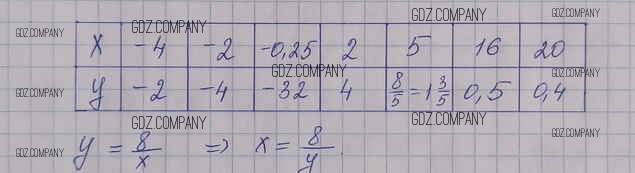 GDZ.COMPANY GDZ.COMPANY GDZ.COMPANY GDZ.COMPANY
x -4 -2 -0,25 2 5 16 20
GDZ.COMPANY GDZ.COMPANY GDZ.COMPANY
y -2 -4 -32 4 8/5 = 1 3/5 0,5 0,4
GDZ.COMPANY GDZ.COMPANY GDZ.COMPANY
y = 8/x => x = 8/y.
GDZ.COMPANY